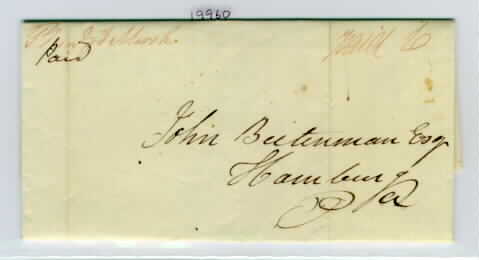 19960
Paid 6
Paid
John Bietenman Esq
Hamburg
Pa